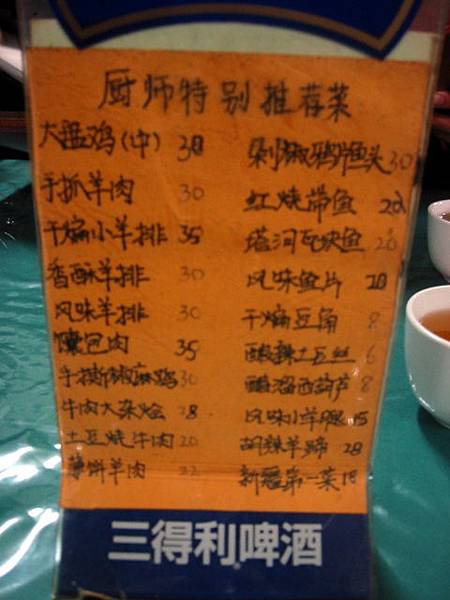 厨师特别推荐菜
大盘鸡(中) 30
手抓羊肉 30
干煸小羊排 35
香酥羊排 30
风味羊排 30
馕包肉 35
手撕椒麻鸡 30
牛肉大杂烩 28
土豆烧牛肉 20
薄饼羊肉 22
剁椒鸦片鱼头 30
红烧带鱼 20
塔河瓦块鱼 20
风味鱼片 28
干煸豆角 8
酸辣土豆丝 6
醋溜西葫芦 8
风味小羊腿 15
胡辣羊蹄 28
新疆第一菜 18
三得利啤酒